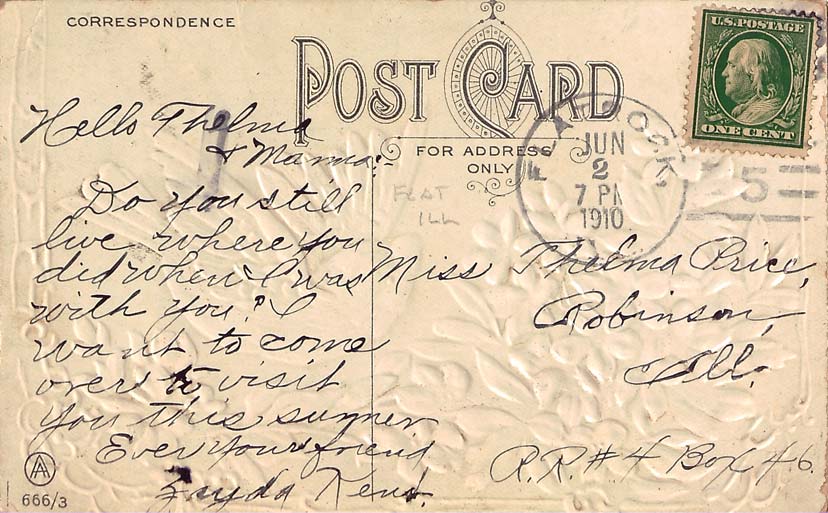 CORRESPONDENCE
POST CARD
FOR ADDRESS
ONLY
U.S. POSTAGE
ONE CENT
FLAT ROCK,
JUN
2
7 PM
1910
5
FLAT
ILL
Hello Thelma
& Mamma:-
Do you still
live where you
did when I was
with you? I
want to come
over to visit
you this summer
Ever your friend
Kent.
Miss Thelma Price,
Robinson,
Ill.
R.R. #4 Box 46.
AA
666/3